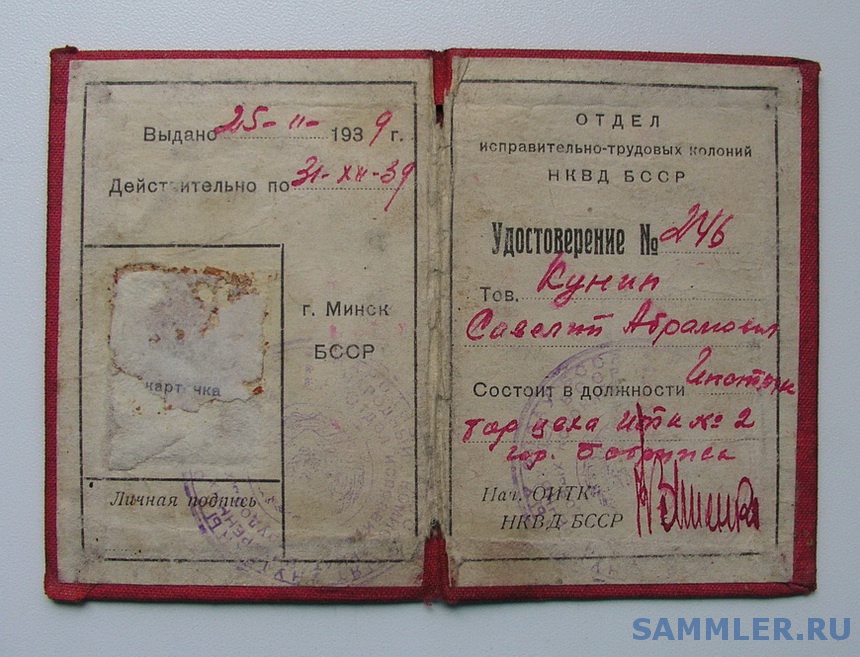 Выдано 25-II-1939 г.
Действительно по 31-XII-39
карточка
г. Минск
БССР
Личная подпись
ОТДЕЛ
исправительно-трудовых колоний
НКВД БССР
Удостоверение № 246
Тов. Кунин
Савелий Абрамович
Состоит в должности Инструк
тор цеха ИТК № 2
гор. Бобруйск
Нач. ОИТК
НКВД БССР
SAMMLER.RU